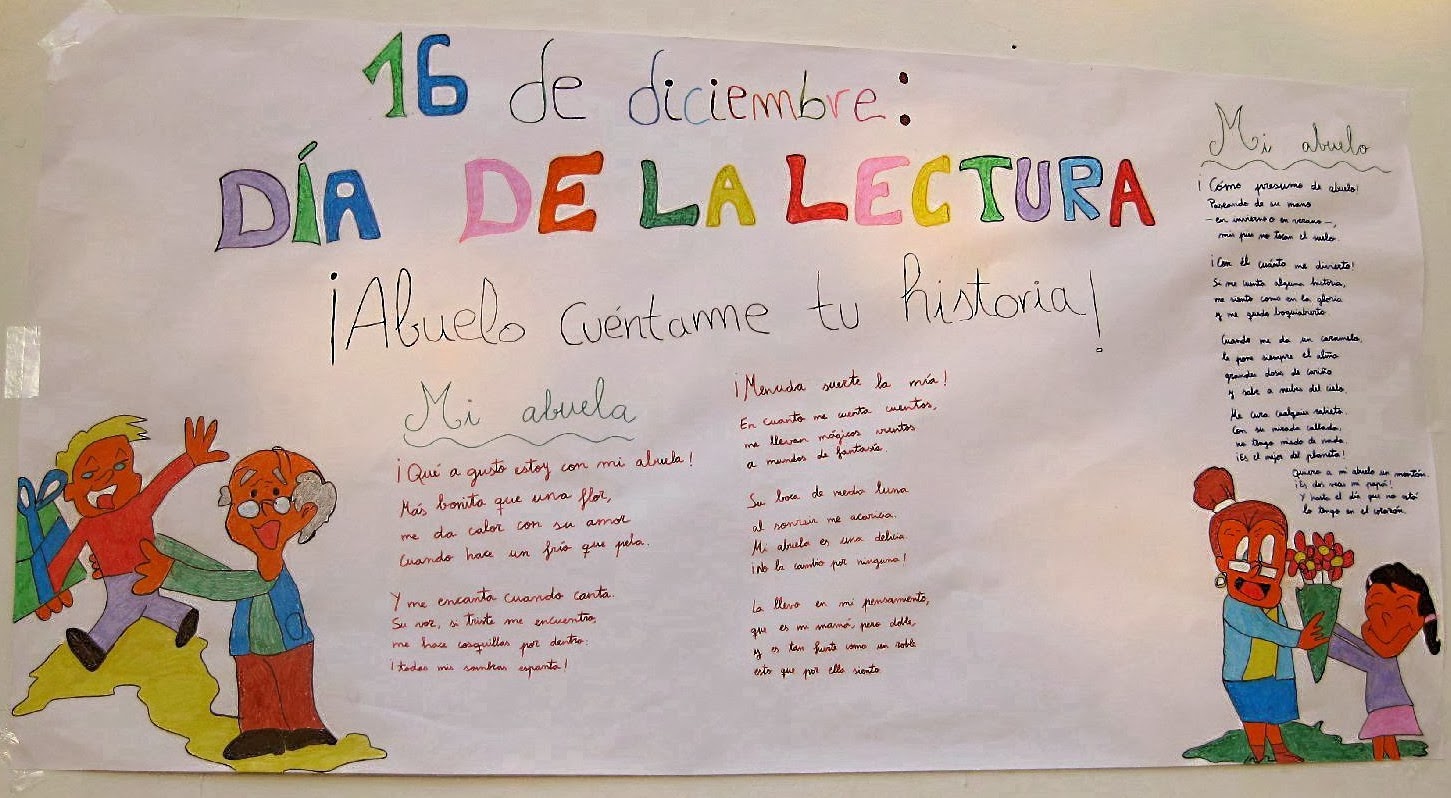 16 de diciembre:
DÍA DE LA LECTURA
¡Abuelo cuéntame tu historia!
Mi abuela
¡Qué a gusto estoy con mi abuela!
Más bonita que una flor,
me da calor con su amor
cuando hace un frío que pela.
Y me encanta cuando canta.
Su voz, si triste me encuentro,
me hace cosquillas por dentro.
¡todas mis sombras espanta!
¡Menuda suerte la mía!
En cuanto me cuenta cuentos,
me llevan mágicos vientos
a mundos de fantasía.
Su boca de media luna
al sonreir me acaricia.
Mi abuela es una delicia
¡No la cambio por ninguna!
La llevo en mi pensamiento,
que es mi mamá, pero doble,
y es tan fuerte como un roble
esto que por ella siento
Mi abuelo
¡Cómo presumo de abuelo!
Paseando de su mano
—en invierno o en verano—,
mis pies no tocan el suelo.
¡Con él cuánto me divierto!
Si me cuenta alguna historia,
me siento como en la gloria
y me quedo boquiabierto.
Cuando me da un caramelo,
le pone siempre el alma
grandes dosis de cariño
y sabe a nubes del cielo.
Me cura cualquier
Con su mirada callada,
no tengo miedo de nada.
¡Es el mejor del planeta!
Quiero a mi abuelo un montón.
¡Es dos veces mi papá!
Y hasta el día que no está
lo tengo en el corazón.